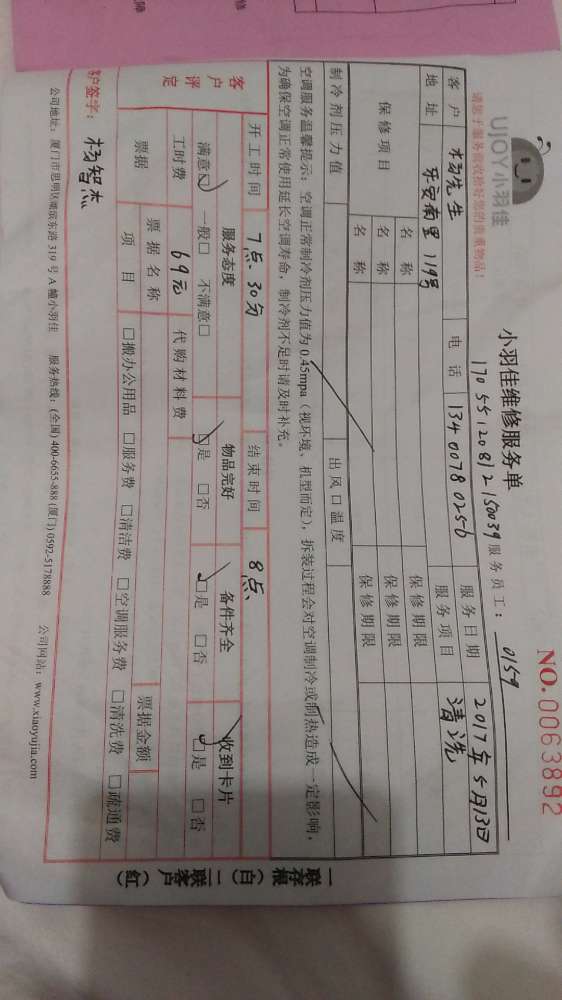 UJOY小羽佳
小羽佳维修服务单
NO.0063892
请您于服务前收捡好您的贵重物品!
17055120812150039
服务员工: 0159
客户 杨先生 电话 13400780256 服务日期 2017年5月13日
地址 119号 服务项目 清洗
保修项目 名称 保修期限
名称 保修期限
名称 保修期限
制冷剂压力值 出风口温度
空调服务温馨提示: 空调正常制冷剂压力值为0.45mpa(视环境、机型而定), 拆装过程会对空调制冷或制热造成一定影响,
为确保空调正常使用延长空调寿命, 制冷剂不足时请及时补充。
开工时间 7点.30分 结束时间 8点.
客户评定 服务态度 物品完好 备件齐全 收到卡片
满意☑ 一般□ 不满意□ ☑是 □否 ☑是 □否 ☑是 □否
工时费 69元 代购材料费
票据 票据名称 票据金额
项目 □搬办公用品 □服务费 □清洁费 □空调服务费 □清洗费 □疏通费
客户签字: 杨智杰
公司地址: 厦门市思明区湖滨东路319号A幢小羽佳 服务热线: (全国) 400-6655-888 (厦门) 0592-5178888 公司网站: www.xiaoyujia.com
一联存根(白) 二联客户(红)